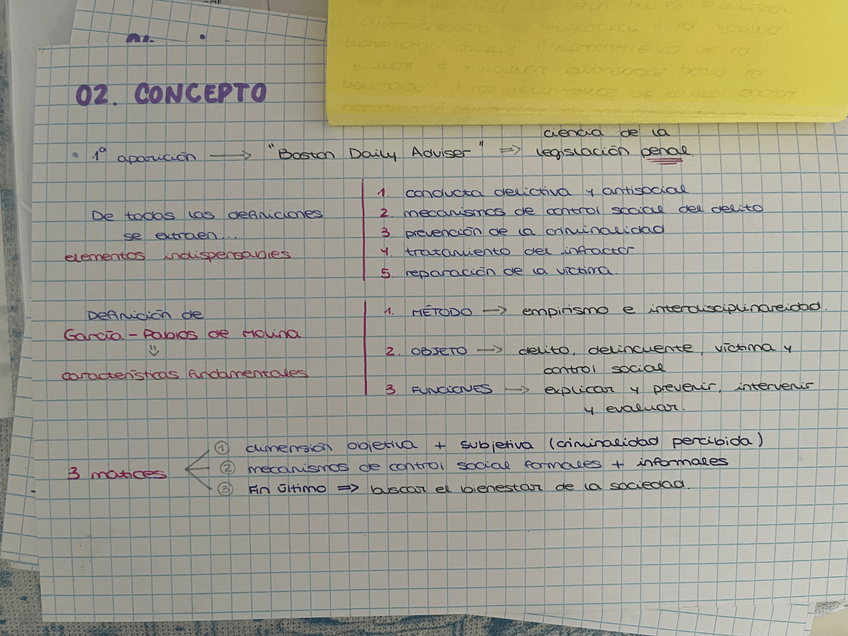 02. CONCEPTO
ciencia de la
• 1º aparición → "Boston Daily Adviser" ⇒ legislación penal
1. conducta delictiva y antisocial
De todas las definiciones
2. mecanismos de control social del delito
se extraen...
3. prevención de la criminalidad
elementos indispensables
4. tratamiento del infractor
5. reparación de la víctima.
Definición de
1. MÉTODO → empirismo e interdisciplinareidad.
García-Pablos de Molina
2. OBJETO → delito, delincuente, víctima y
control social
características fundamentales
3 FUNCIONES → explicar y prevenir, intervenir
y evaluar.
① dimensión objetiva + subjetiva (criminalidad percibida)
3 matices
② mecanismos de control social formales + informales
③ Fin último ⇒ buscar el bienestar de la sociedad.